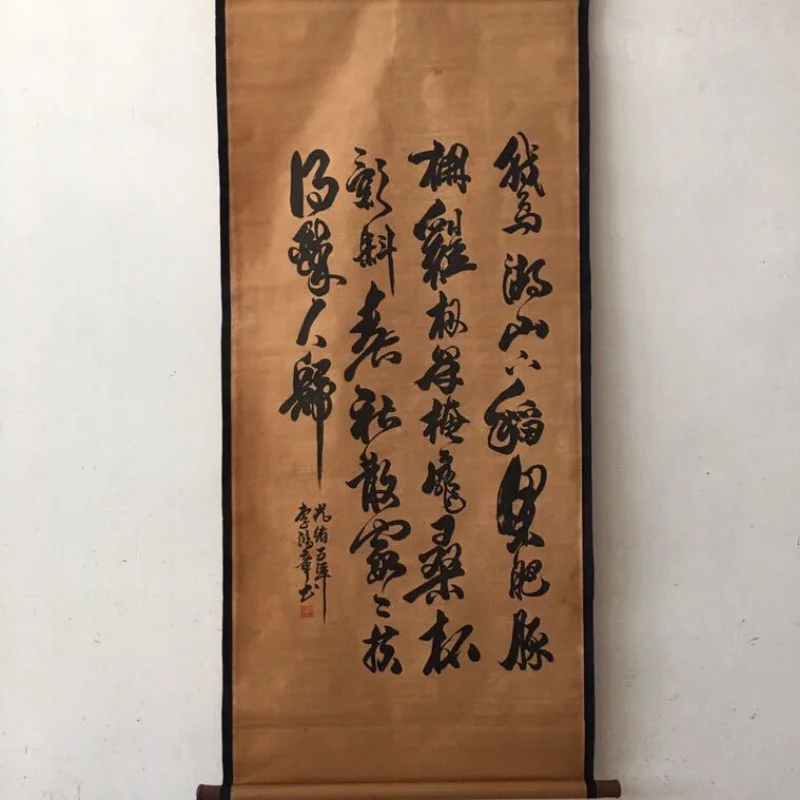 鵞湖山下稻粱肥豚
柵雞栖半掩扉桑柘
影斜春社散家〻扶
得醉人歸
光緒五年
李鴻章书